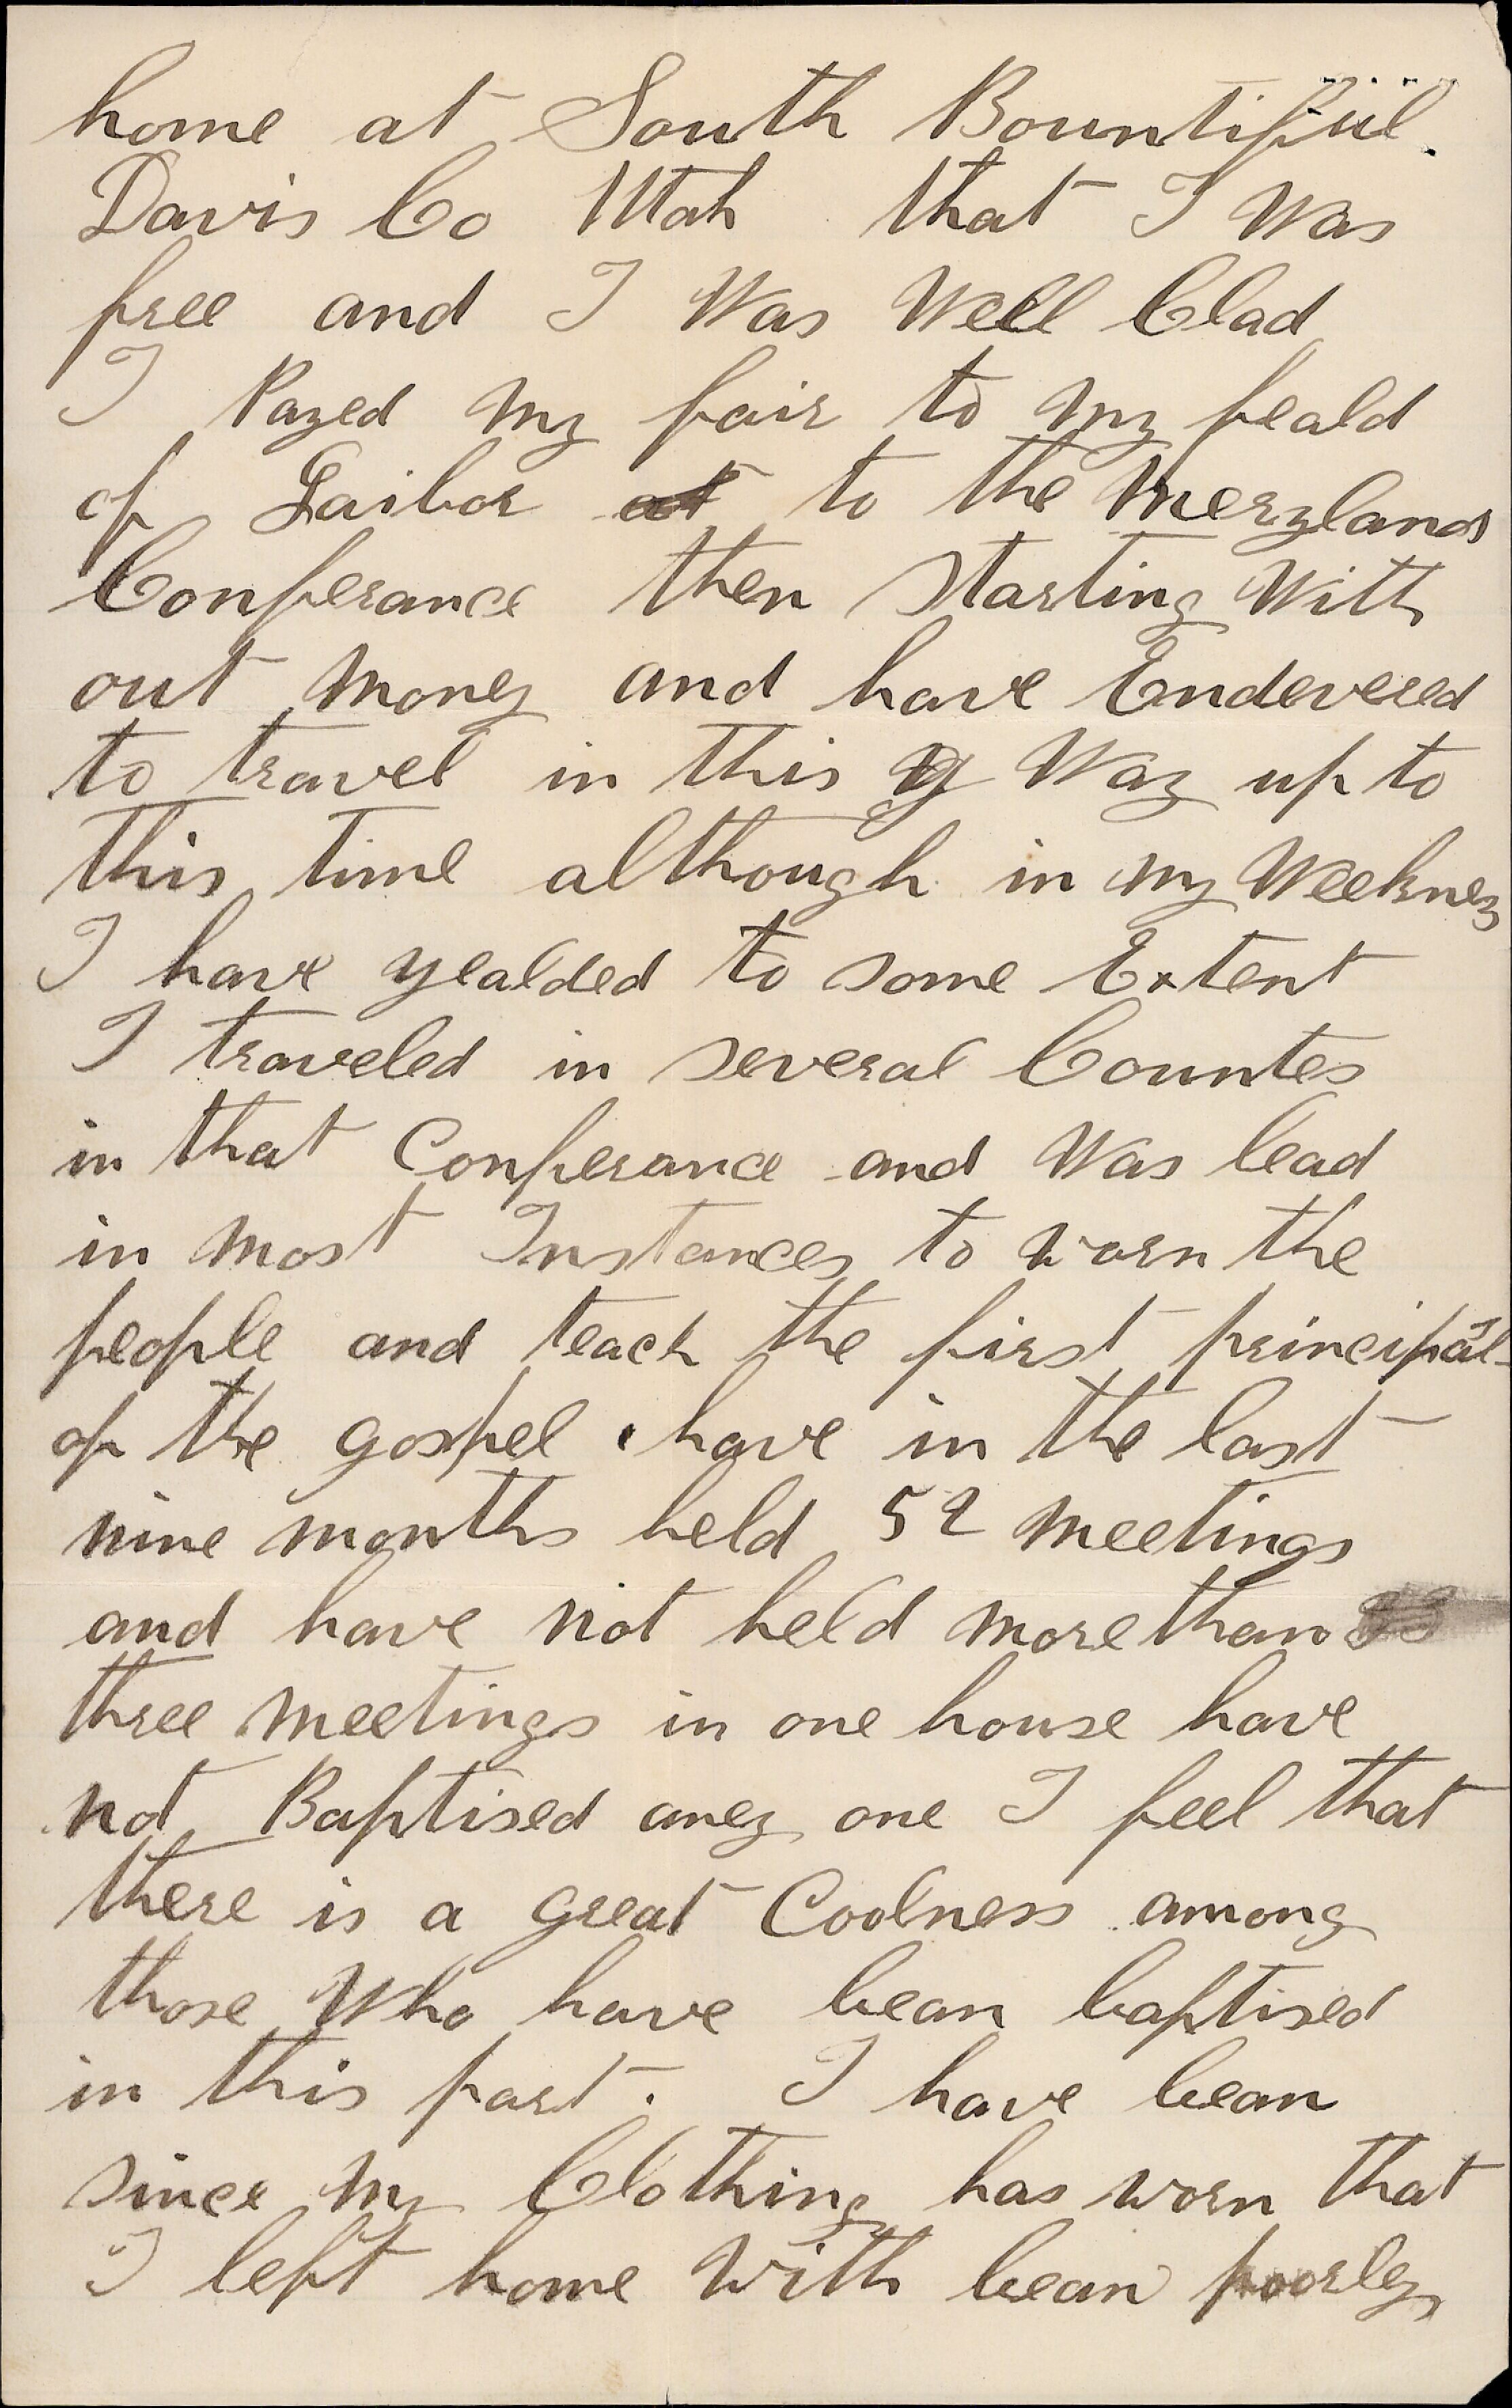 home at South Bountiful.
Davis Co Utah that I Was
free and I Was Well Clad
I Payed my fair to my feald
of Laibor at to the Meryland
Conferance then starting With
out money and have Endevered
to travel in this Way up to
this time although in my Weeknes
I have yealded to some Extent
I traveled in several Countes
in that Conferance and Was lead
in most Instances to worn the
people and teach the first principals
of the gospel have in the last
nine months held 52 meetings
and have not held more than
three meetings in one house have
not Baptised aney one I feel that
there is a great Coolness among
those Who have bean baptised
in this part. I have bean
since my Clothing has worn that
I left home With bean poorley